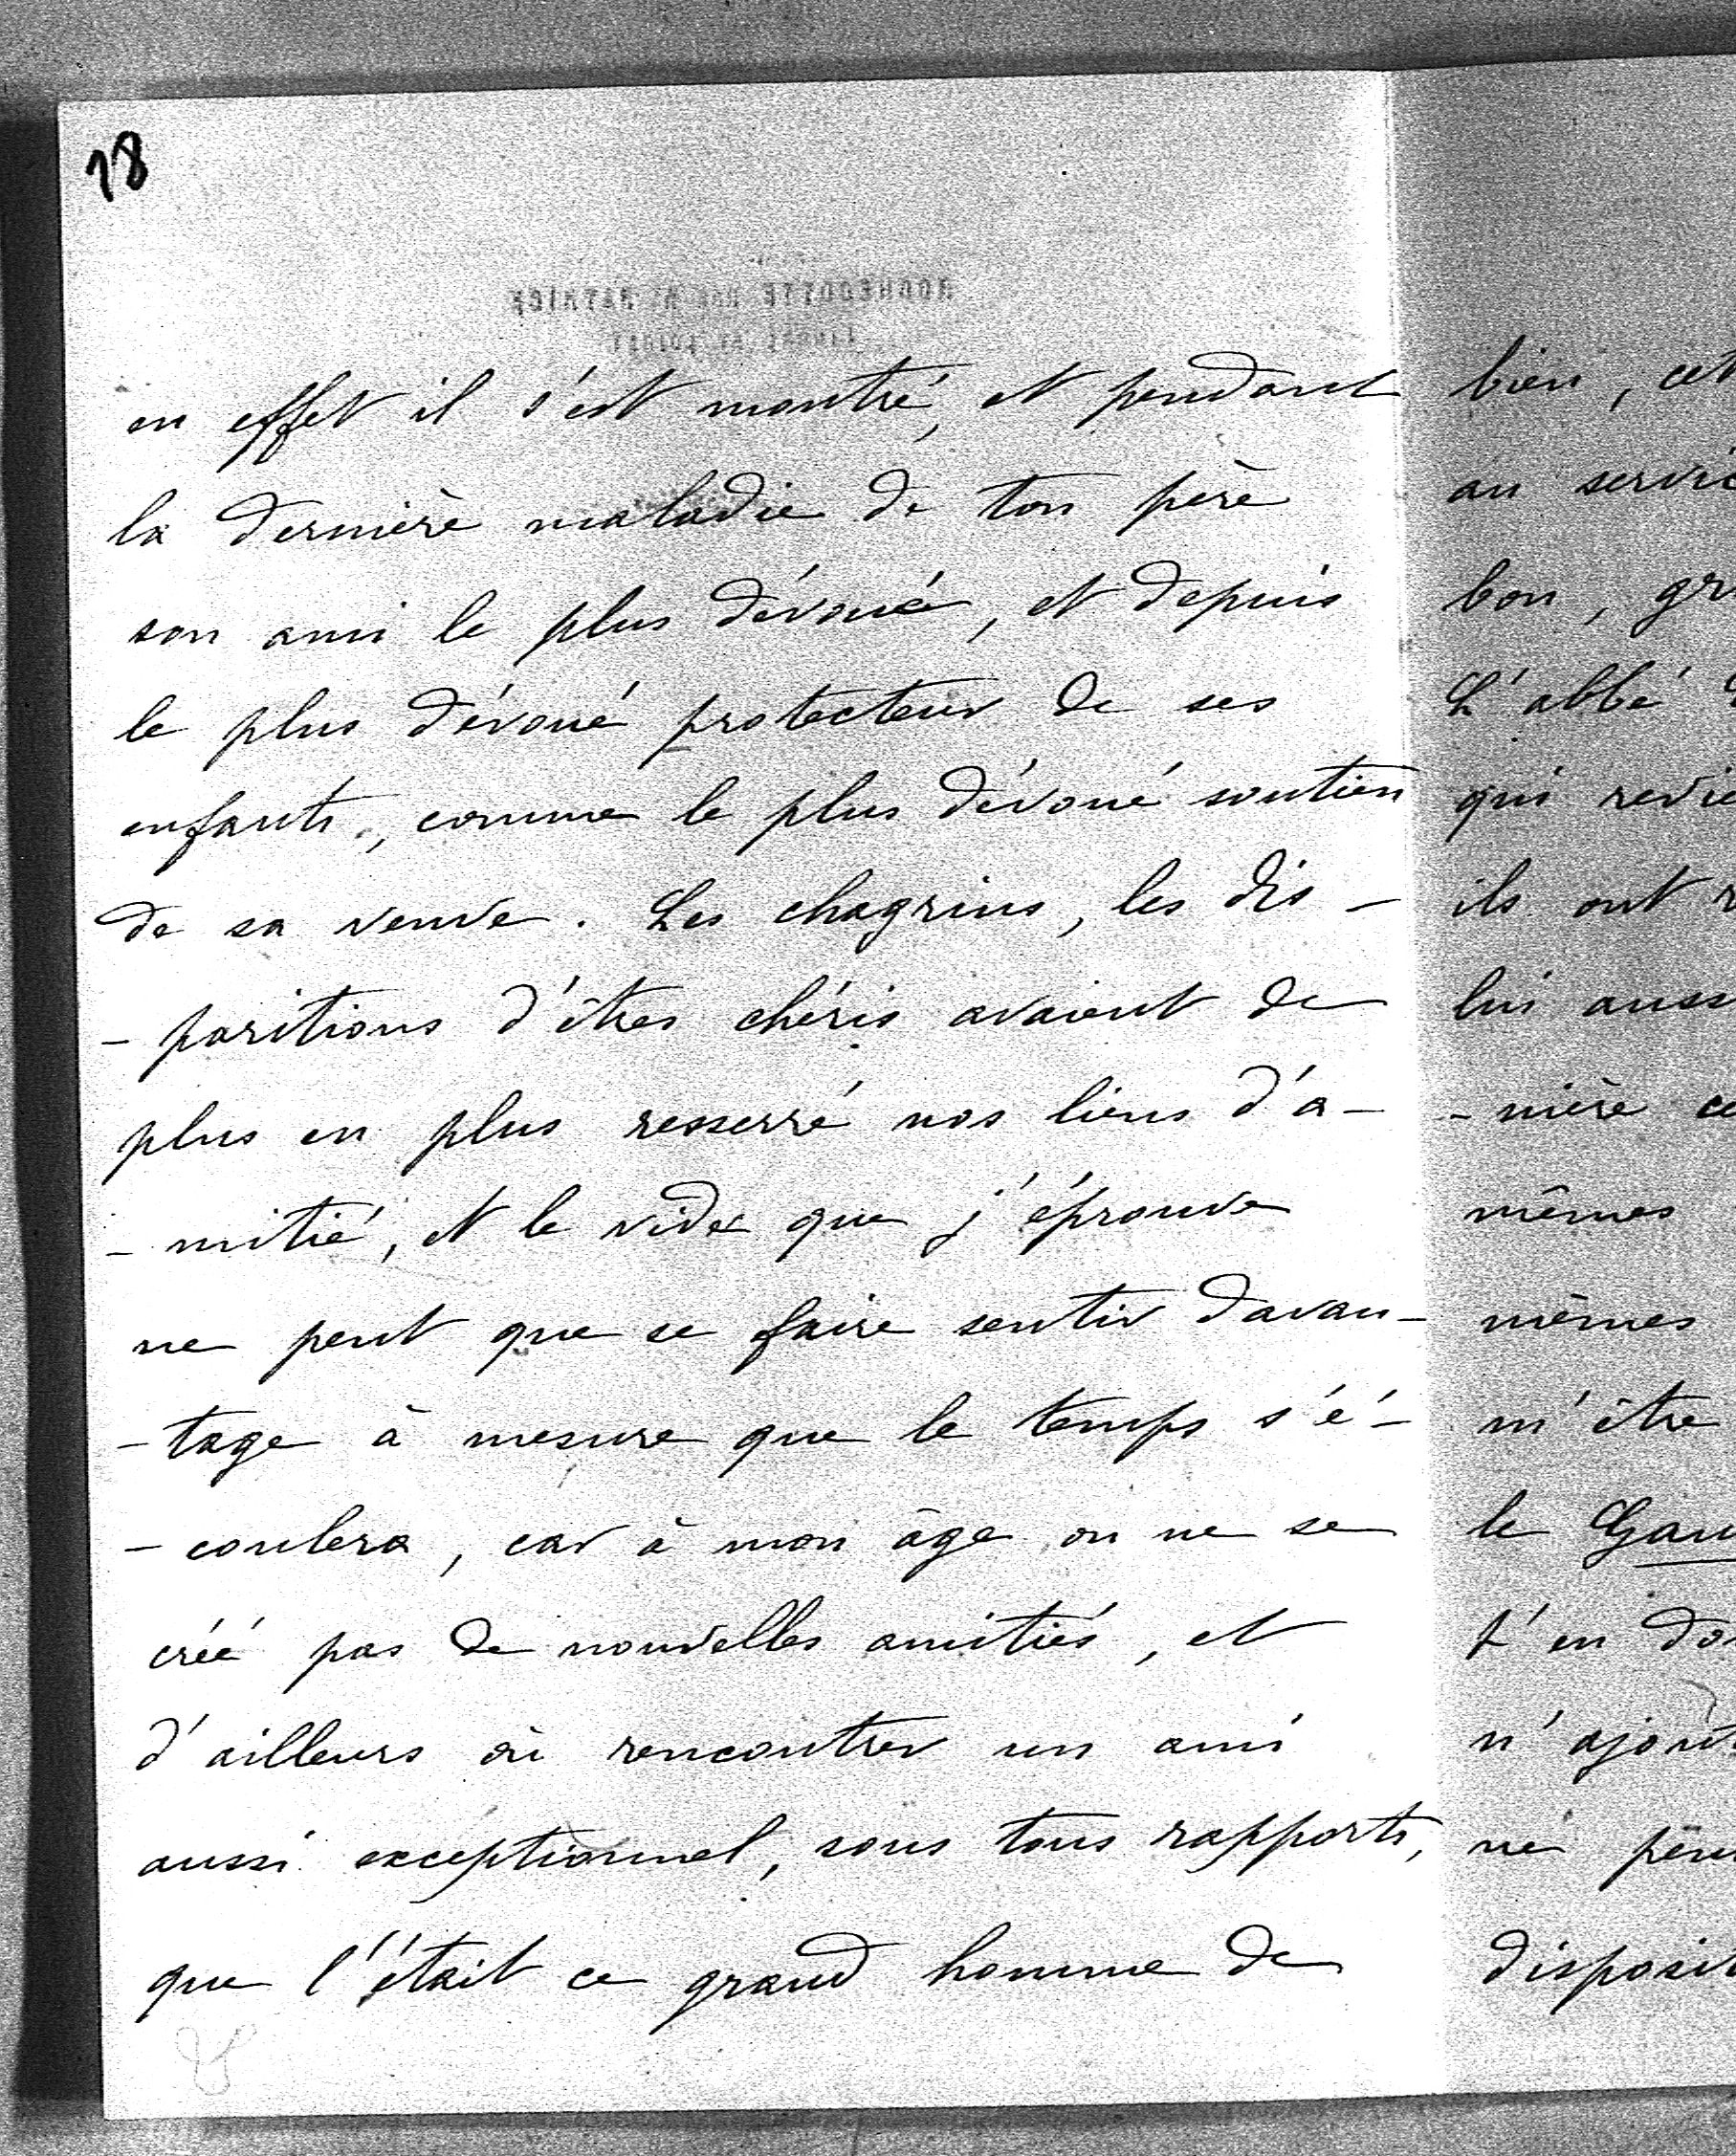 18
en effet il s'est montré, et pendant
la dernière maladie de ton père
son ami le plus dévoué, et depuis
le plus dévoué protecteur de ses
enfants, comme le plus dévoué soutien
de sa veuve. Les chagrins, les dis-
-paritions d'êtres chéris avaient de
plus en plus resserré nos liens d'a-
-mitié, et le vide que j'éprouve
ne peut que se faire sentir davan-
-tage à mesure que le temps s'é-
-coulera, car à mon âge on ne se
créé pas de nouvelles amitiés, et
d'ailleurs où rencontrer un ami
aussi exceptionnel, sous tous rapports,
que l'était ce grand homme de
bien, cet
au servic
bon, gr
L'abbé
qui revie
ils ont r
lui auss
-nière ce
mêmes
mêmes
m'être
le Gau
t'en do
n'ajout
disposit